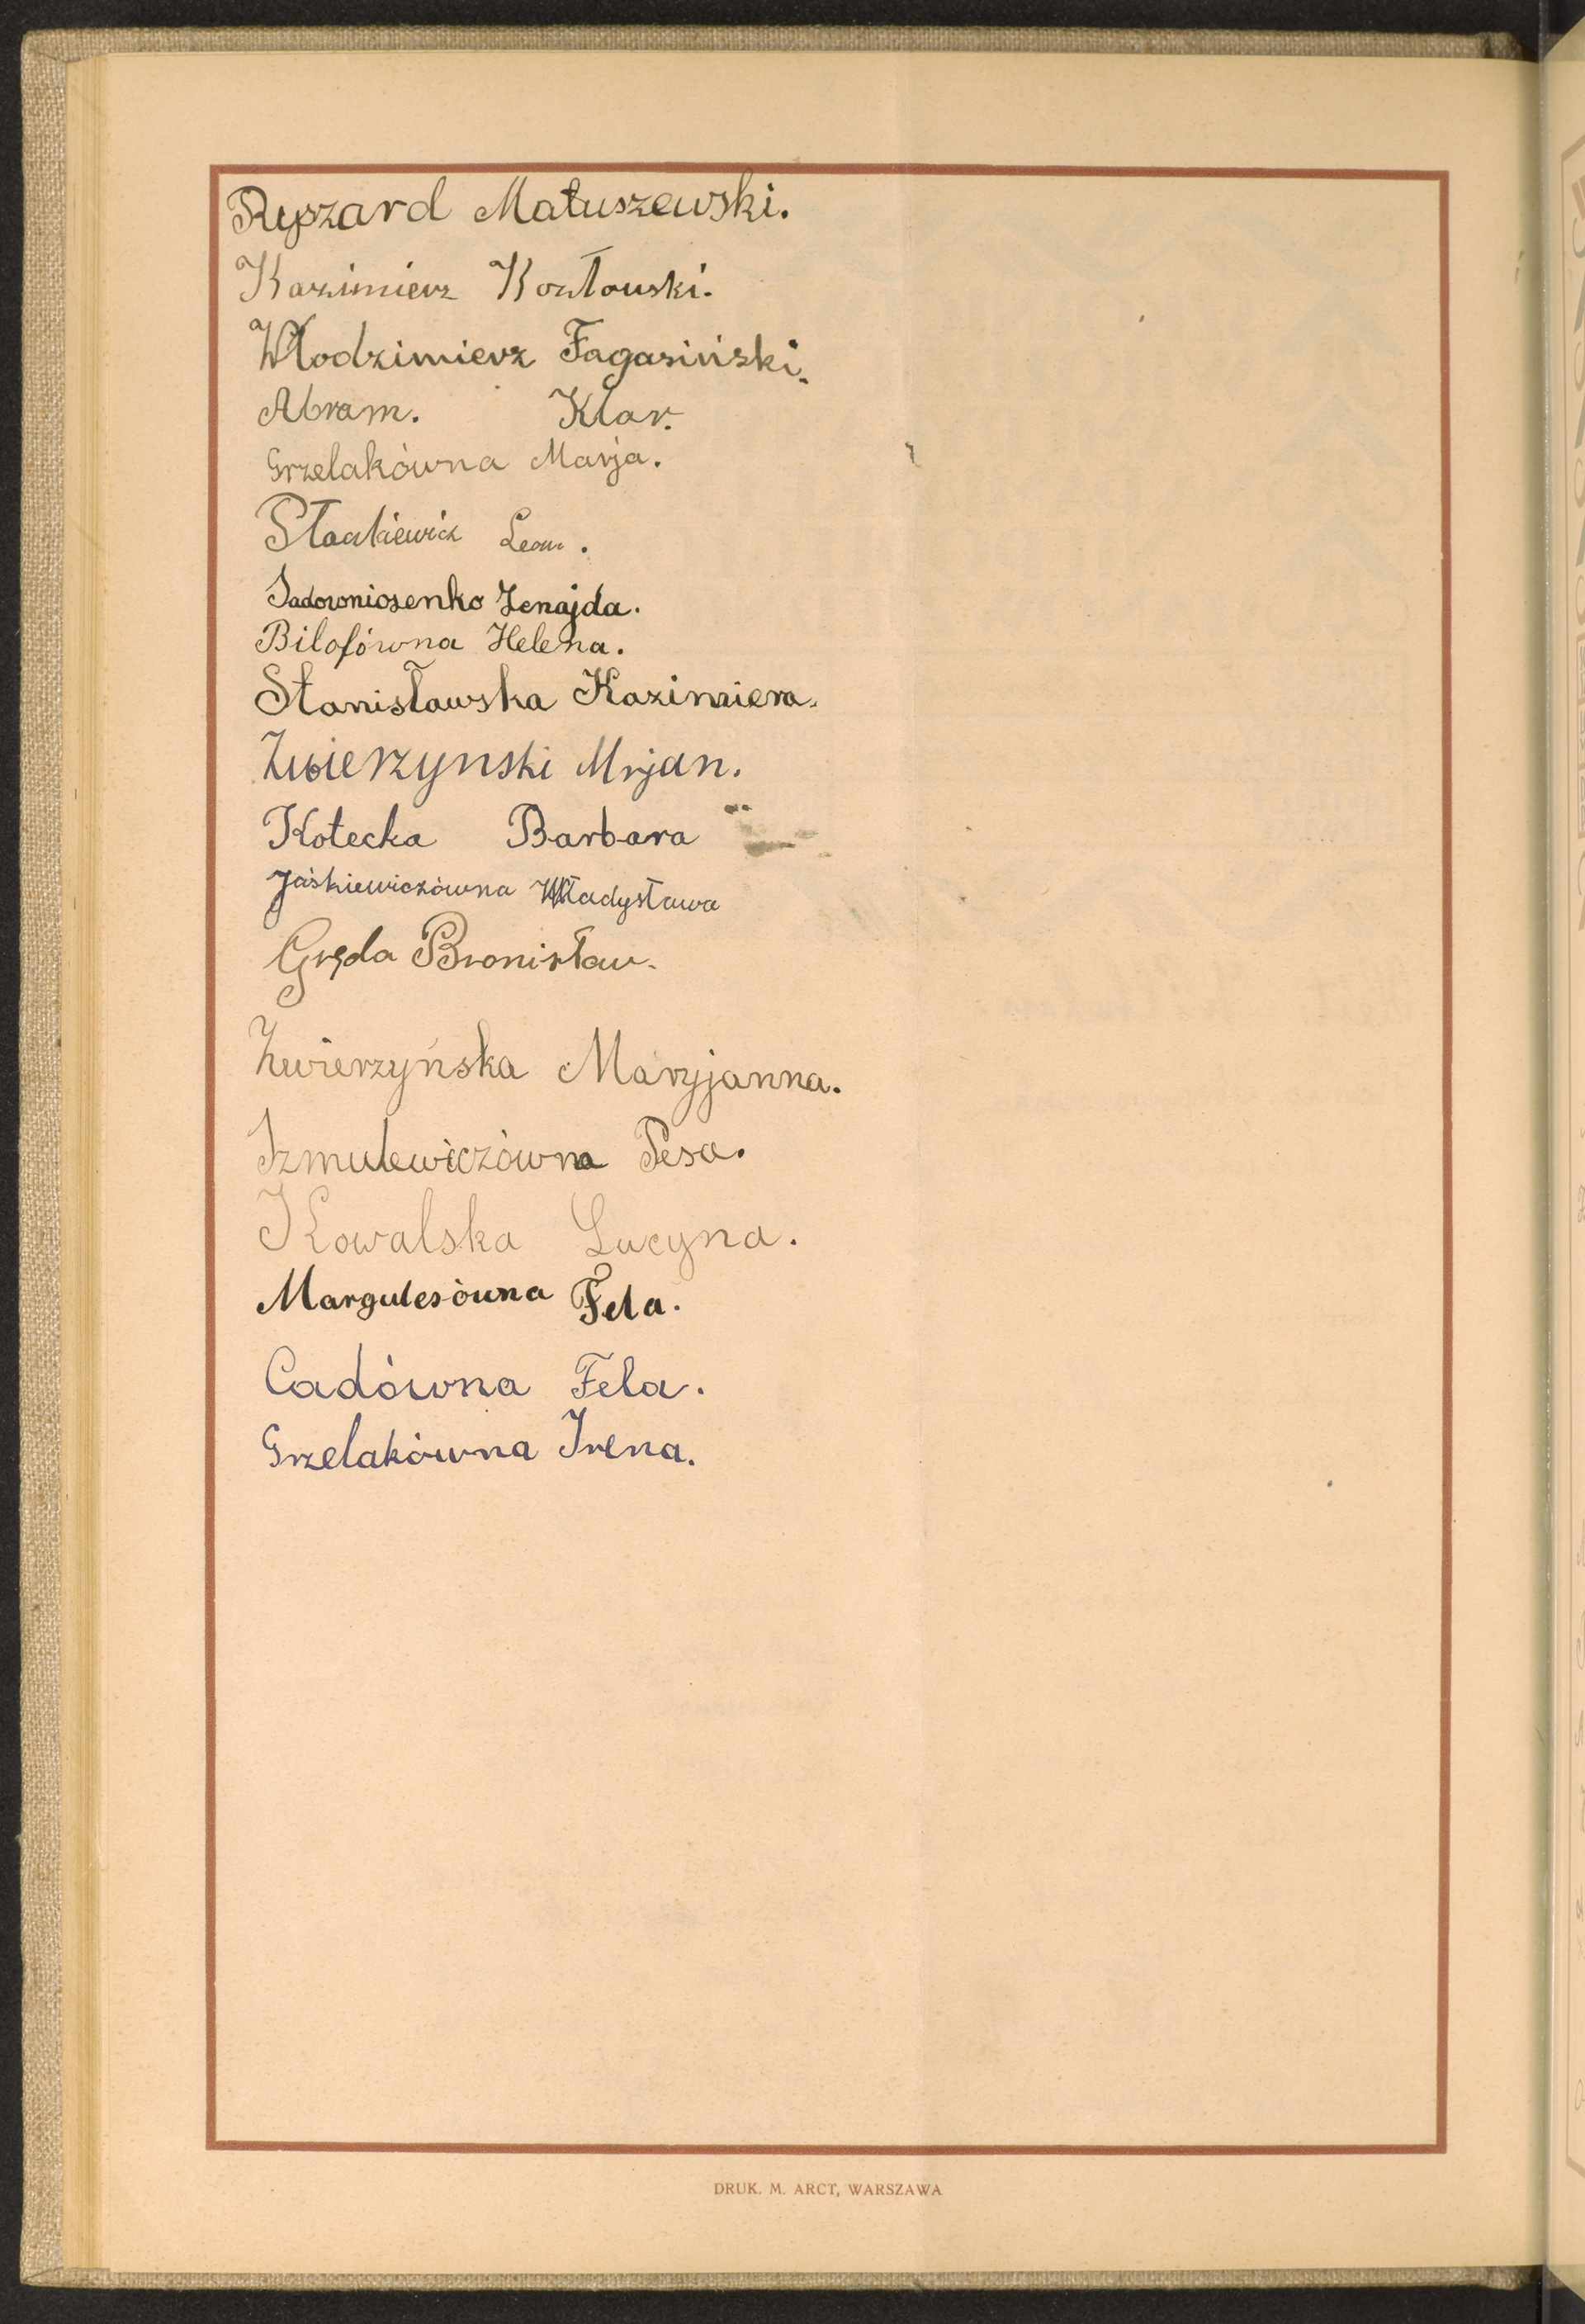 Ryszard Matuszewski.
Kazimierz Kozłowski.
Włodzimierz Fagasiński.
Abram. Klar.
Grzelakówna Marja.
Leon.
Zenajda.
Bilofówna Helena.
Stanisławska Kazimiera.
Zwierzynski Mrjan.
Kotecka Barbara
Jaśkiewiczówna Władysława
Gręda Bronisław.
Zwierzyńska Maryjanna.
Szmulewiczówna Pesa.
Kowalska Lucyna.
Margulesówna Fela.
Cadówna Fela.
Grzelakówna Irena.
DRUK. M. ARCT, WARSZAWA